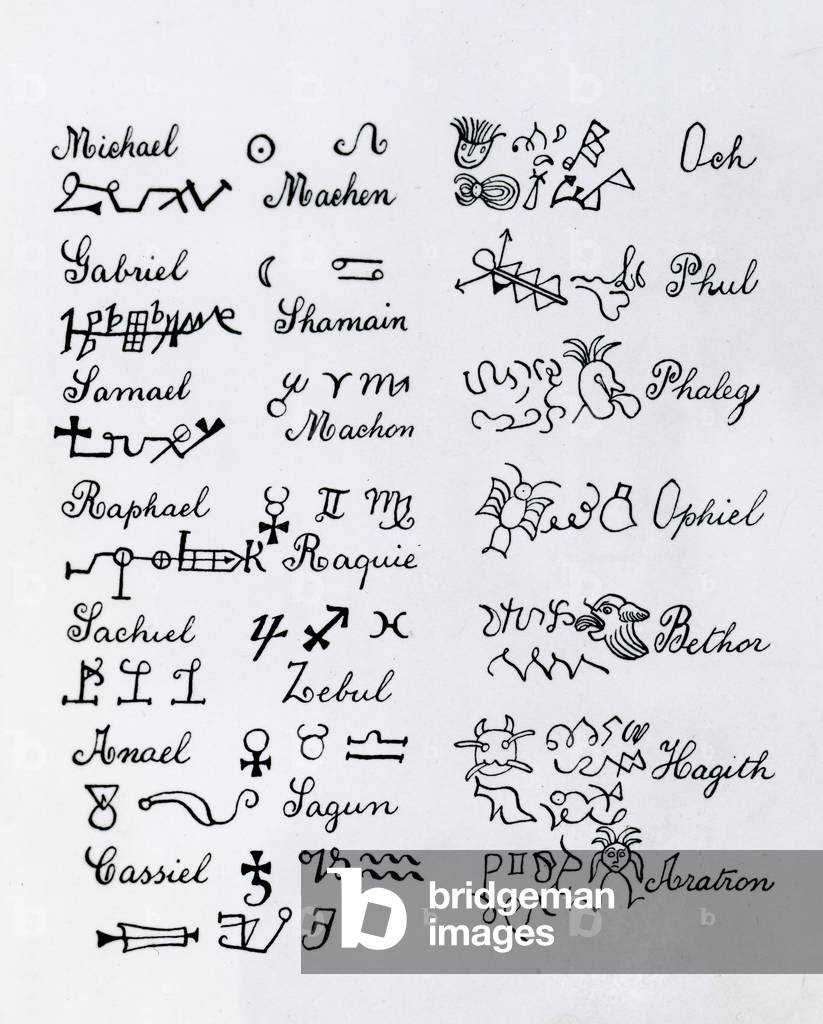 Michael ☉ ♌ Och
Machen
Gabriel ☾ ♋ Phul
Shamain
Samael ♂ ♈ ♏ Phaleg
Machon
Raphael ☿ ♊ ♍ Ophiel
Raquie
Sachiel ♃ ♐ ♓ Bethor
Zebul
Anael ♀ ♉ ♎ Hagith
Sagun
Cassiel ♄ ♑ ♒ Aratron
b bridgeman
images